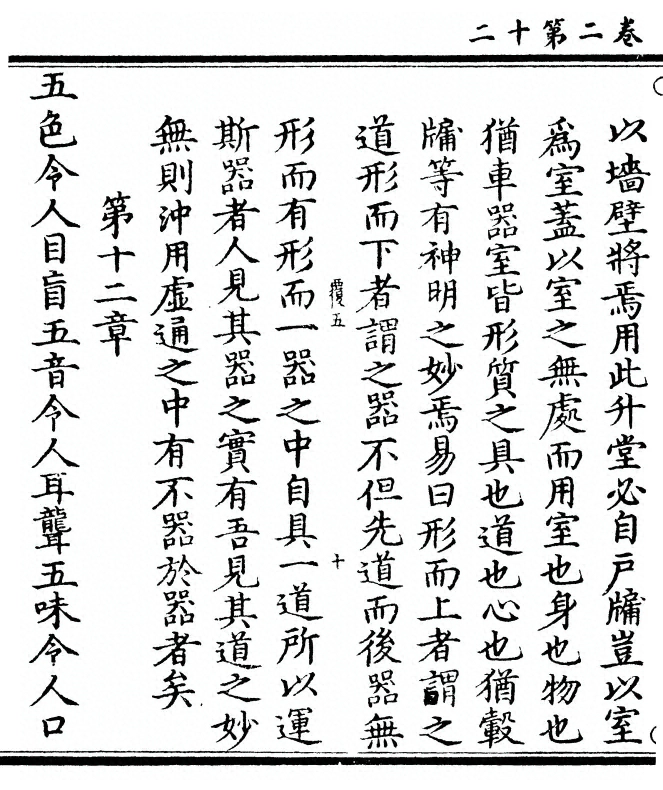 卷二第十二
以墻壁將焉用此升堂必自戶牖豈以室
爲室蓋以室之無處而用室也身也物也
猶車器室皆形質之具也道也心也猶轂
牖等有神明之妙焉易曰形而上者謂之
道形而下者謂之器不但先道而後器無
覆五
十
形而有形而一器之中自具一道所以運
斯器者人見其器之實有吾見其道之妙
無則沖用虛通之中有不器於器者矣
第十二章
五色令人目盲五音令人耳聾五味令人口